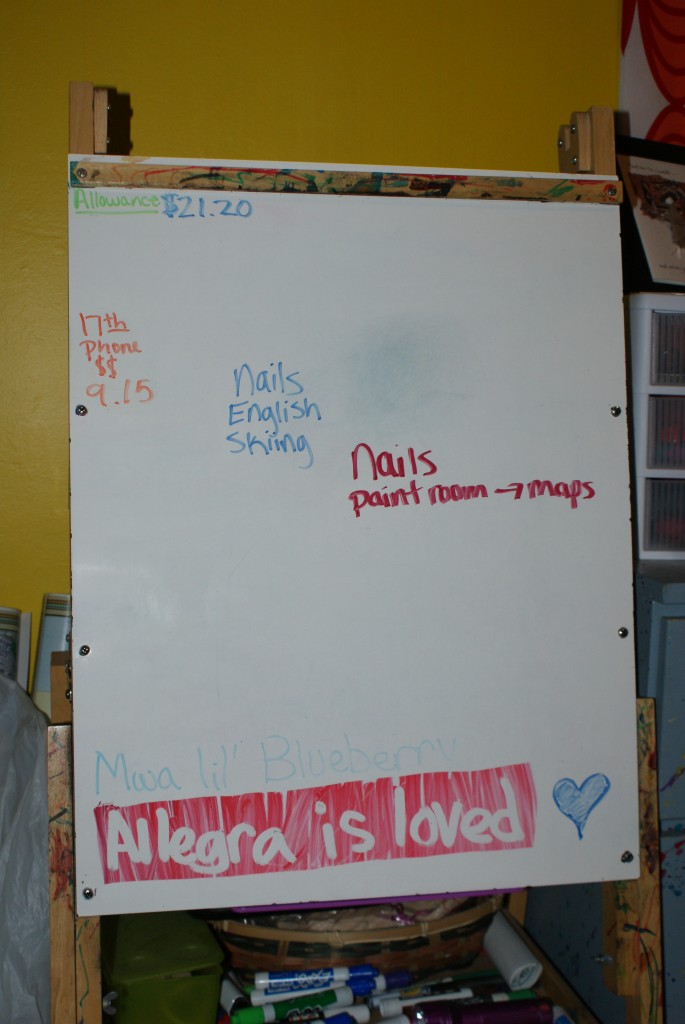 Allowance $21.20
17th
Phone
$$
9.15
Nails
English
Skiing
Nails
paint room → maps
Mwa lil' Blueberry
Allegra is loved
EXPO